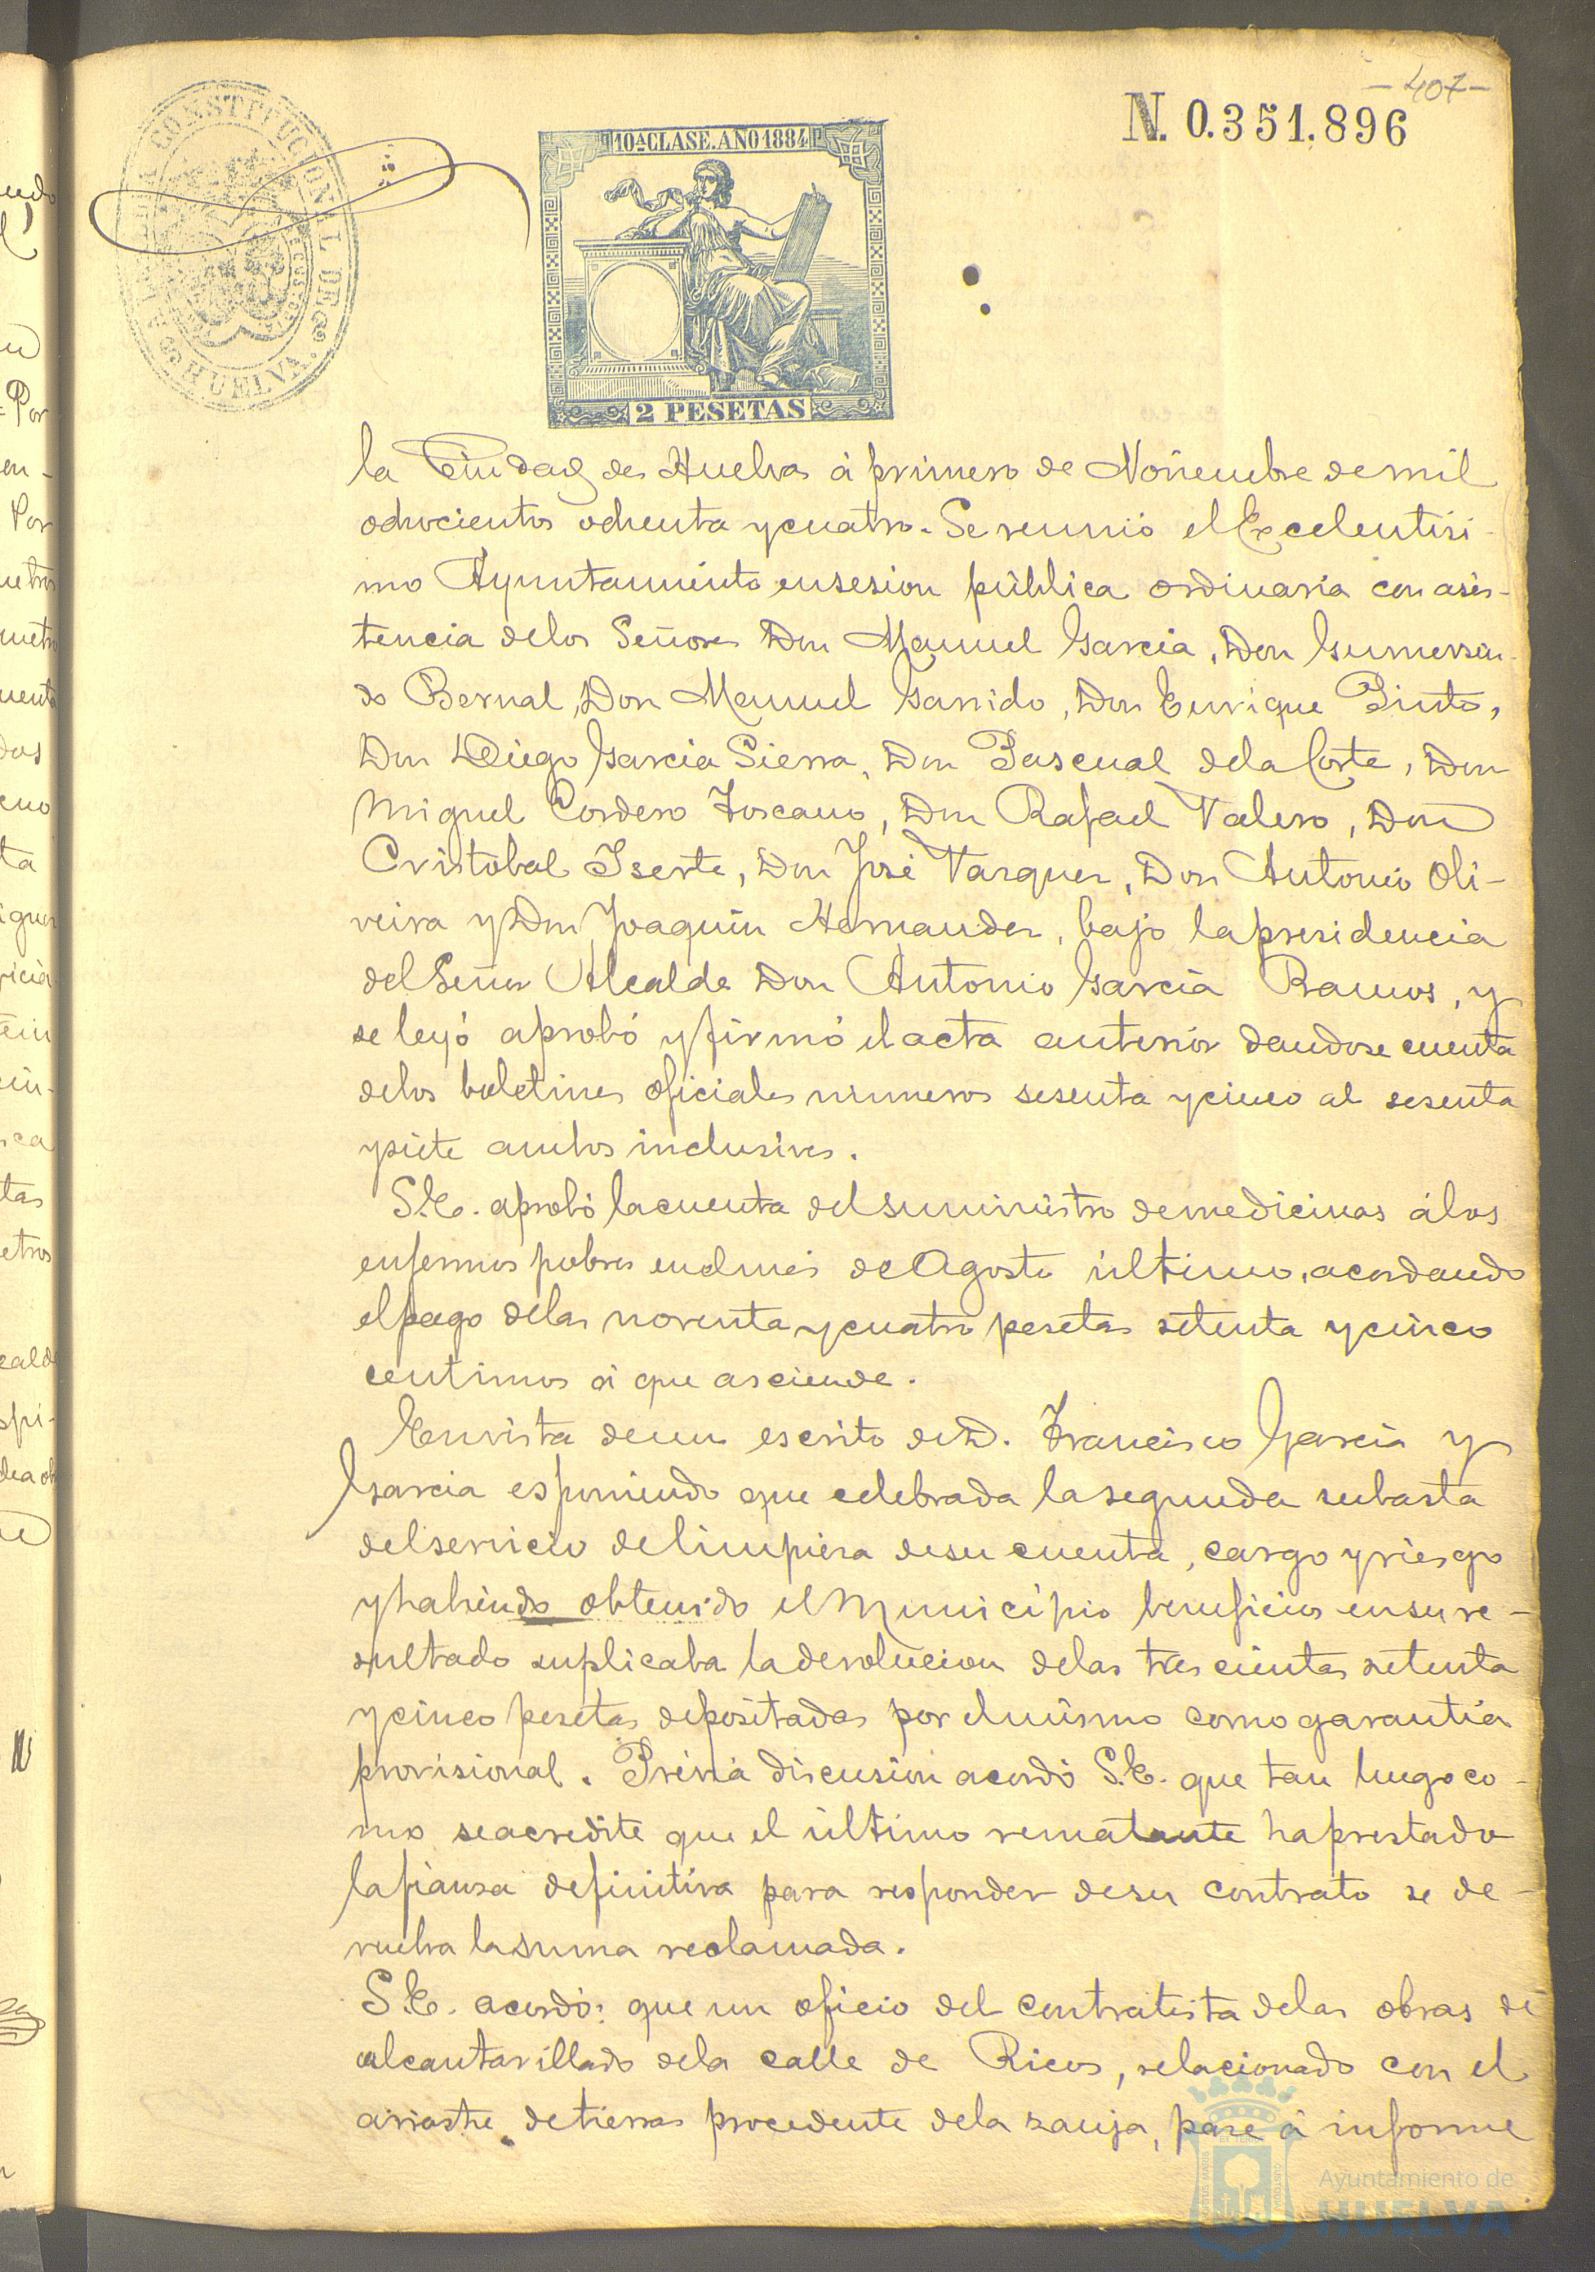 - 407 -
N. 0.351,896
CONSTITUCIONAL DE
HUELVA.
10ª CLASE. AÑO 1884
2 PESETAS
la Ciudad de Huelva á primero de Noviembre de mil
ochocientos ochenta y cuatro. Se reunió el Excelentisi-
mo Ayuntamiento en sesion pública ordinaria con asis-
tencia de los Señores Don Manuel Garcia, Don Gumersin-
do Bernal, Don Manuel Garrido, Don Enrique Pinto,
Don Diego Garcia Sierra, Don Pascual de la Corte, Don
Miguel Cordero Toscano, Don Rafael Valero, Don
Cristobal Iserte, Don José Vazquez, Don Antonio Oli-
veira y Don Joaquin Hernandez, bajo la presidencia
del Señor Alcalde Don Antonio Garcia Ramos, y
se leyó aprobó y firmó el acta anterior dandose cuenta
de los boletines oficiales numeros sesenta y cinco al sesenta
y siete ambos inclusives.
S.E. aprobó la cuenta del suministro de medicinas á los
enfermos pobres en el mes de Agosto último, acordando
el pago de las noventa y cuatro pesetas setenta y cinco
centimos á que asciende.
En vista de un escrito de D. Francisco Garcia y
Garcia esponiendo que celebrada la segunda subasta
del servicio de limpieza de su cuenta, cargo y riesgo
y habiendo obtenido el Municipio beneficios en su re-
sultado suplicaba la devolucion de las trescientas setenta
y cinco pesetas depositadas por el mismo como garantia
provisional. Previa discusion acordó S.E. que tan luego co-
mo se acredite que el último rematante ha prestado
la fianza definitiva para responder de su contrato se de-
vuelva la suma reclamada.
S.E. acordó: que un oficio del contratista de las obras de
alcantarillado de la calle de Ricos, relacionado con el
arrastre de tierras procedente de la zanja, pase á informe
Ayuntamiento de
HUELVA